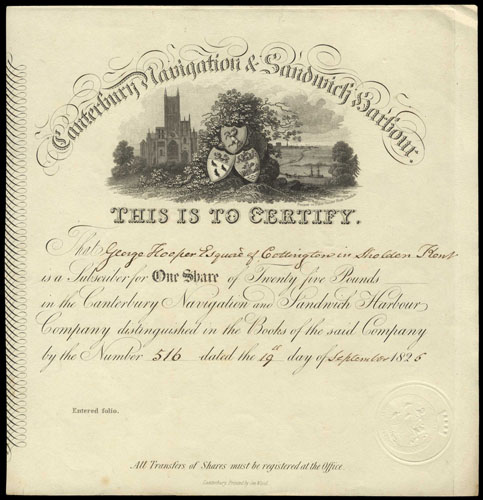 Canterbury Navigation & Sandwich Harbour.
THIS IS TO CERTIFY.
That George Hooper Esquire of Cottington in Sholden Kent
is a Subscriber for One Share of Twenty five Pounds
in the Canterbury Navigation and Sandwich Harbour
Company distinguished in the Books of the said Company
by the Number 516 dated the 19th day of September 1826
Entered folio.
All Transfers of Shares must be registered at the Office.
Canterbury Printed by Wood